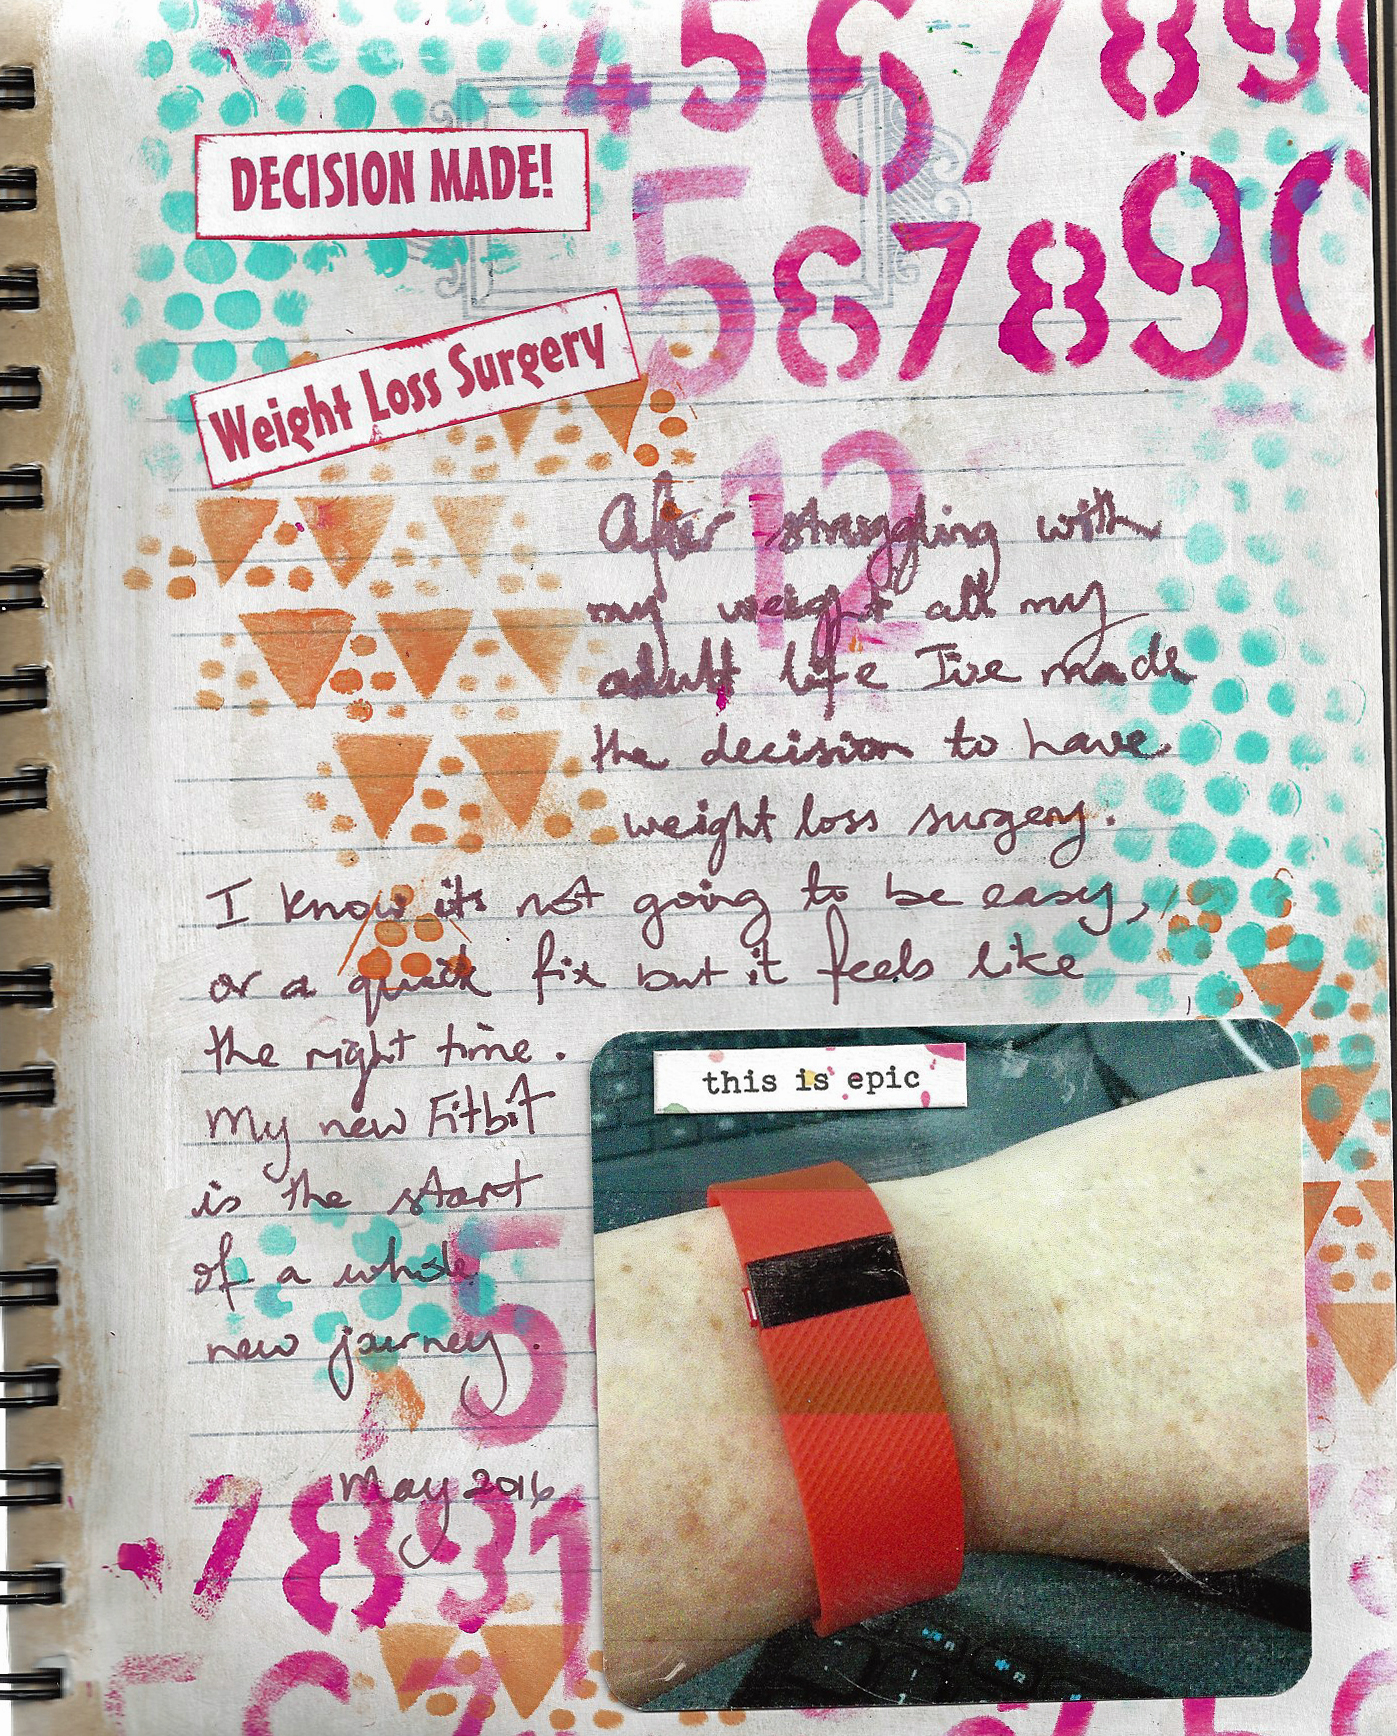 4 5 6 7 8 9 0
DECISION MADE!
5 6 7 8 9 0
Weight Loss Surgery
12
After struggling with
my weight all my
adult life I've made
the decision to have
weight loss surgery.
I know its not going to be easy,
or a quick fix but it feels like
the right time.
this is epic
My new Fitbit
is the start
of a whole
new journey.
5
May 2016
7 8 9 1